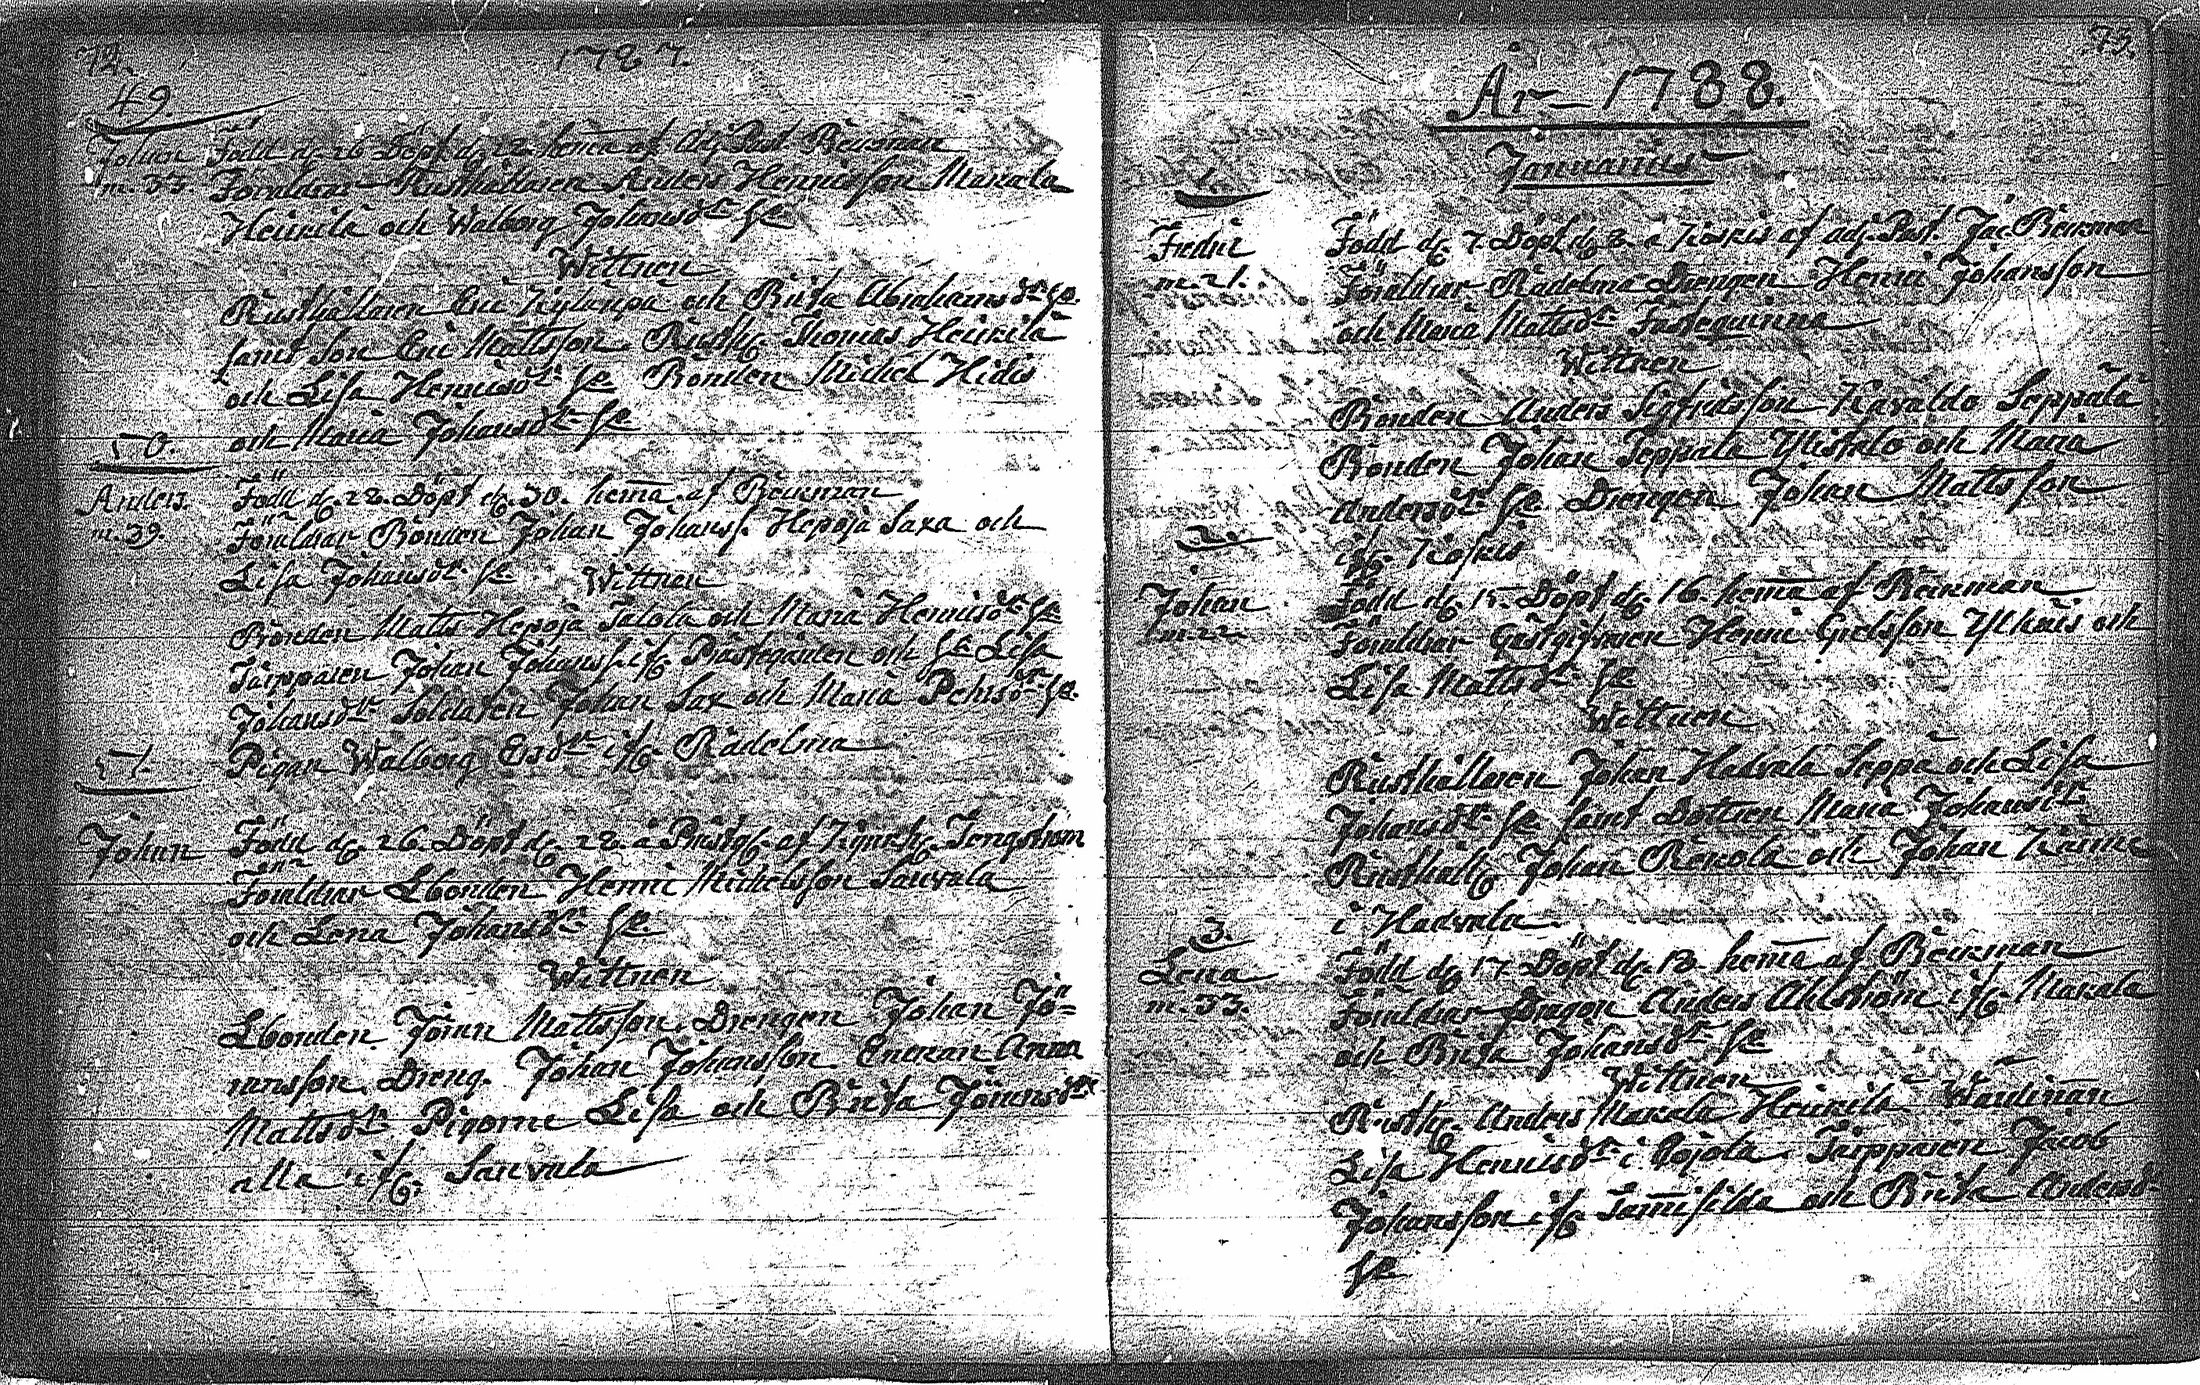 72.
1787.
49.
Johan Född d. 26 Döpt d. 28. hema af Adj. Past. Beckman
m. 33. Föräldrar Rusthållaren Anders Henricsson Makala
Heickilä och Walborg Johansdr
Wittnen
Rusthållaren Eric och Brita Abrahamsdr
samt Son Eric Mattsson Rusth. Thomas Heickilä
och Lisa Henricsdr Bonden Michel Hidis
och Maria Johansdr
50.
Anders. Född d. 22. Döpt d. 30. hema af Beckman
m. 39. Föräldrar Bonden Johan Johanss. Hepoja Saxa och
Lisa Johansdr Wittnen
Bonden Matts Hepoja Jalola och Maria Henricsdr
Torpparen Johan Johanss. ifr. Prästegården och Lisa
Johansdr Soldaten Johan Sax och Maria Pehrsdr
Pigan Walborg Ersdr ifr. Radelma
51.
Johan Född d. 26. Döpt d. 28. i Prästg. af Tengström
Föräldrar Lbonden Henric Michelsson Sauvala
och Lena Johansdr
Wittnen
Lbonden Jöran Mattsson. Drengen Johan Jö-
ransson Dreng. Johan Johansson Enckan Anna
Mattsdr Pigorne Lisa och Brita Jöransdr
alla ifr. Sauvala
73.
År 1788.
Januarius
1.
Fredric Född d. 7. Döpt d. 8. i Koskis af adj. Past. Jac. Beckman
m. 21. Föräldrar Radelma Drengen Henric Johansson
och Maria Mattsdr Fästeqvinna
Wittnen
Bonden Anders Sigfridsson Kavaldo Seppälä
Bonden Johan Seppälä och Maria
Andersdr Drengen Johan Mattsson
ifr. Koskis
2.
Johan Född d. 15. Döpt d. 16. hema af Beckman
m. 22. Föräldrar Gästgifvaren Henric Ylhäis och
Lisa Mattsdr
Wittnen
Rusthållaren Johan Hakvala Seppä och Lisa
Johansdr samt Dottren Maria Johansdr
Rusthåll. Johan Rekola och Johan
i Hakvala
3.
Lena Född d. 17. Döpt d. 18. hema af Beckman
m. 33. Föräldrar Dragon Anders Ahlström ifr. Makala
och Brita Johansdr
Wittnen
Rusth. Anders Makala Heickilä Wärdinan
Lisa Henricsdr i Torpparen Jacob
Johansson ifr. Tamisilda och Brita Andersd